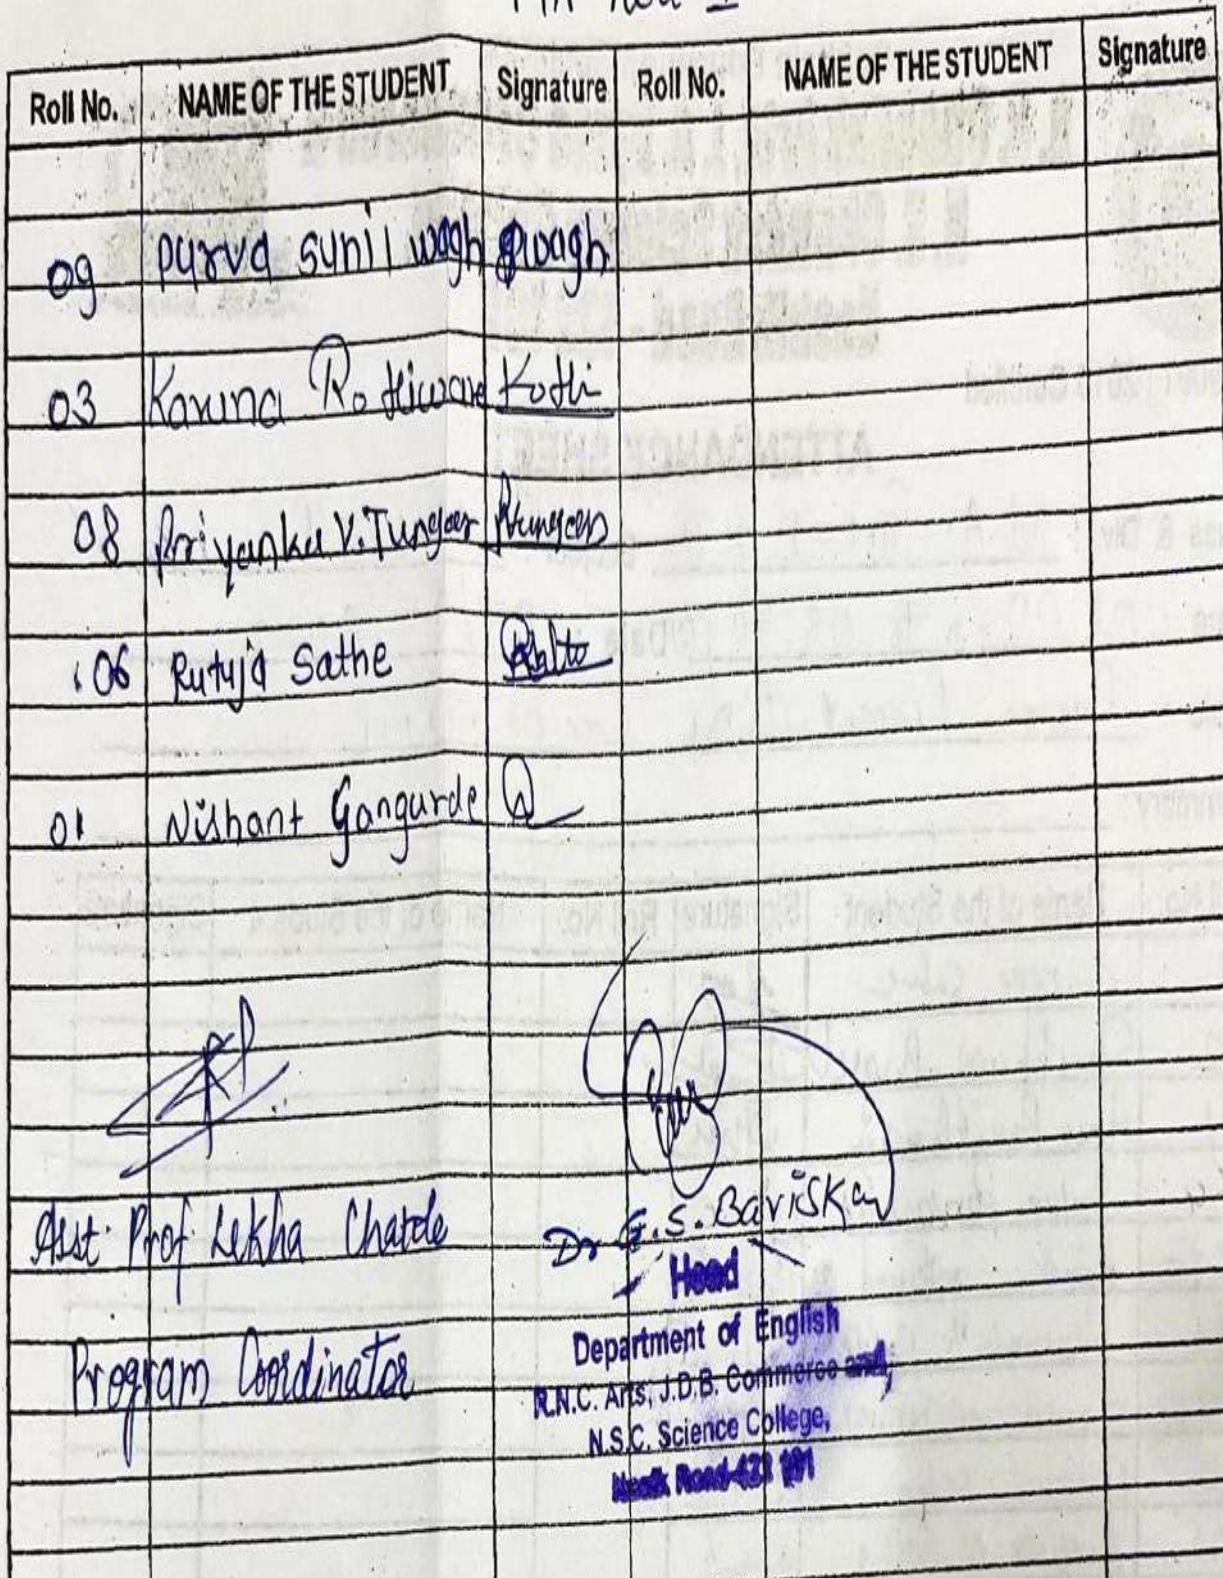 Roll No. NAME OF THE STUDENT Signature Roll No. NAME OF THE STUDENT Signature
09 Purva Sunil wagh Pwagh
03 Karuna R. Hiware
08 Priyanka V. Tungar Ptungar
06 Rutuja Sathe
01 Nishant Gangurde
Asst. Prof. Lekha Chatde
Dr G.S. Baviskar
Head
Program Coordinator
Department of English
R.N.C. Arts, J.D.B. Commerce and
N.S.C. Science College,
Nasik Road-422 101